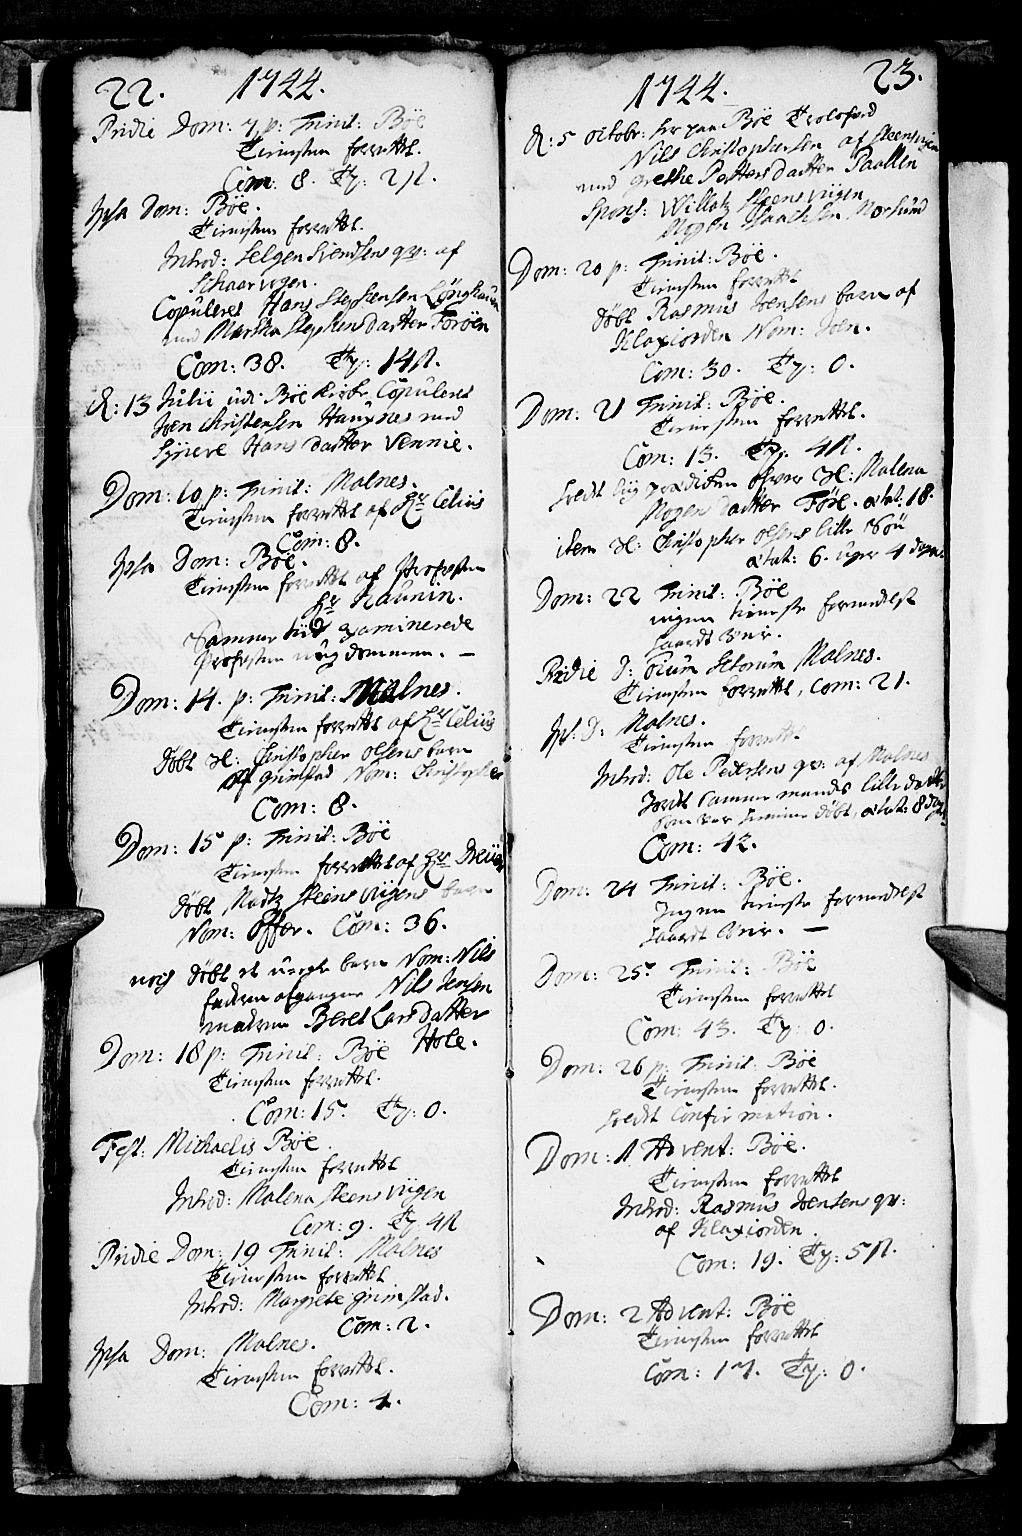 22. 1744.
Pridie Dom: 7 p: Trinit: Böe
Tienesten forrettet.
Com: 8. Ty: 2
Ipsa Dom: Böe.
Tienesten forrettet.
Introd: Svendsens qv: af
Schaarvogen.
Copuleret Hans Stephensen
med Martha Stephensdatter Foröen
Com: 38. Ty: 14
d: 13 Julii udi Böe Kirke Copuleret
Joen Christensen med
Hans datter Vennie.
Dom: 10 p: Trinit: Malnes.
Tienesten forrettet af Hr Celius
Com: 8.
Ipsa Dom: Böe.
Tienesten forrettet af Profosten
Hr
Samme tiid examinerede
Profosten ungdommen. —
Dom: 14. p: Trinit: Malnes.
Tienesten forrettet af Hr Celius
Döbt Christopher Olsens barn
af Grimstad Nom: Christopher
Com: 8.
Dom: 15 p: Trinit: Böe
Tienesten forrettet af Hr
döbt Steensviigens barn
Nom: Com: 36.
noch döbt et uægte barn Nom: Nils
faderen Nils Jensen
moderen Beret Larsdatter
Hole.
Dom: 18 p: Trinit: Böe
Tienesten forrettet.
Com: 15. Ty: 0.
Fest: Michaelis Böe.
Tienesten forrettet
Introd: Malena Steensviigen
Com: 9. Ty: 4
Pridie Dom: 19 Trinit: Malnes
Tienesten forrettet
Introd: Margrete Grimstad.
Com: 2.
Ipsa Dom: Malnes.
Tienesten forrettet.
Com: 4.
1744. 23.
d: 5 Octobr: her paa Böe Trolofved
Nils Christophersen af Steensviigen
med Grethe Petters datter
Spons: Steensviigen
Mogen Isaachsen
Dom: 20 p: Trinit: Böe.
Tienesten forrettet
döbt Rasmus Joensens barn af
Klaxiorden Nom: Joen.
Com: 30. Ty: 0.
Dom: 21 Trinit: Böe.
Tienesten forrettet.
Com: 13. Ty: 4
holdt liig prædiken over Malena
Mogens datter Före. ætat: 18.
item Christopher Olsens lille Sön
ætat: 6. uger 4 dage
Dom: 22 Trinit: Böe
ingen tieneste formedelst
haardt veir.
Pridie D: Malnes.
Tienesten forrettet, Com: 21.
Ips: D: Malnes.
Tienesten forrett.
Introd: Ole Pedersens qv: af Malnes
Jordt samme mands lille datter
som var hiemme döbt, ætat: 8 dage
Com: 42.
Dom: 24 Trinit: Böe.
Ingen tieneste formedelst
haardt Veir. —
Dom: 25 Trinit: Böe
Tienesten forrettet
Com: 43. Ty: 0.
Dom: 26 p: Trinit: Böe
Tienesten forrettet.
holdt Confirmation.
Dom: 1 Advent: Böe.
Tienesten forrettet
Introd: Rasmus Joensens qv:
af Klaxiorden.
Com: 19. Ty: 5
Dom: 2 Advent: Böe
Tienesten forrettet
Com: 17. Ty: 0.